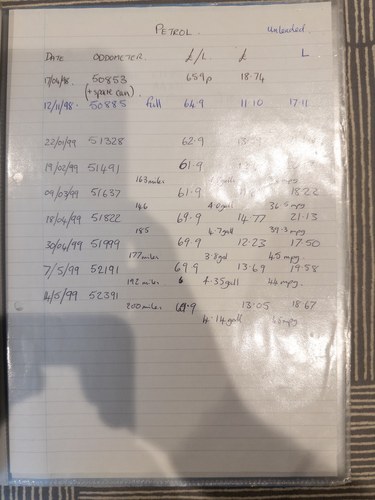 PETROL.
unleaded.
DATE ODOMETER. £/L. £ L
50853 65.9p 18.74
(+ spare can)
12/11/98. 50885 full 64.9 11.10 17.11
22/01/99 51328 62.9
19/02/99 51491 61.9
163 miles mpg
09/03/99 51637 61.9 18.22
146 4.0gall 36.5 mpg
18/04/99 51822 69.9 14.77 21.13
185 4.7gall 39.3 mpg
30/04/99 51999 69.9 12.23 17.50
177 miles 3.8gal 45 mpg
7/5/99 52191 69.9 13.69 19.58
192 miles 4.35gall 44 mpg.
14/5/99 52391 69.9 13.05 18.67
200 miles 4.14 gall mpg